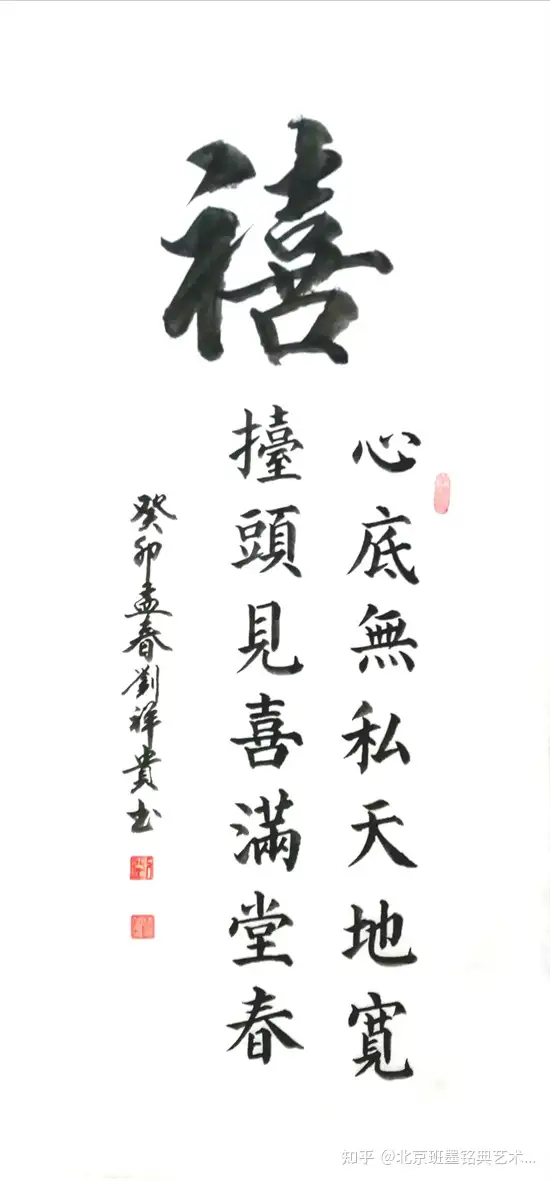 禧
心底無私天地寬
擡頭見喜滿堂春
癸卯孟春劉祥貴书
知乎 @北京班墨铭典艺术...